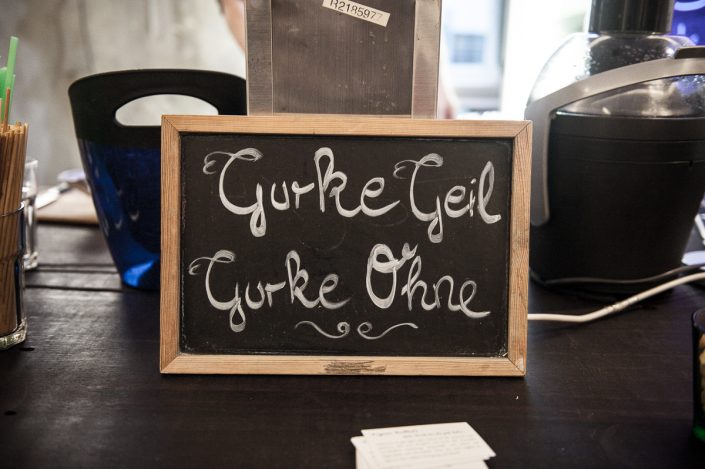 H2185977
Gurke Geil
Gurke Ohne